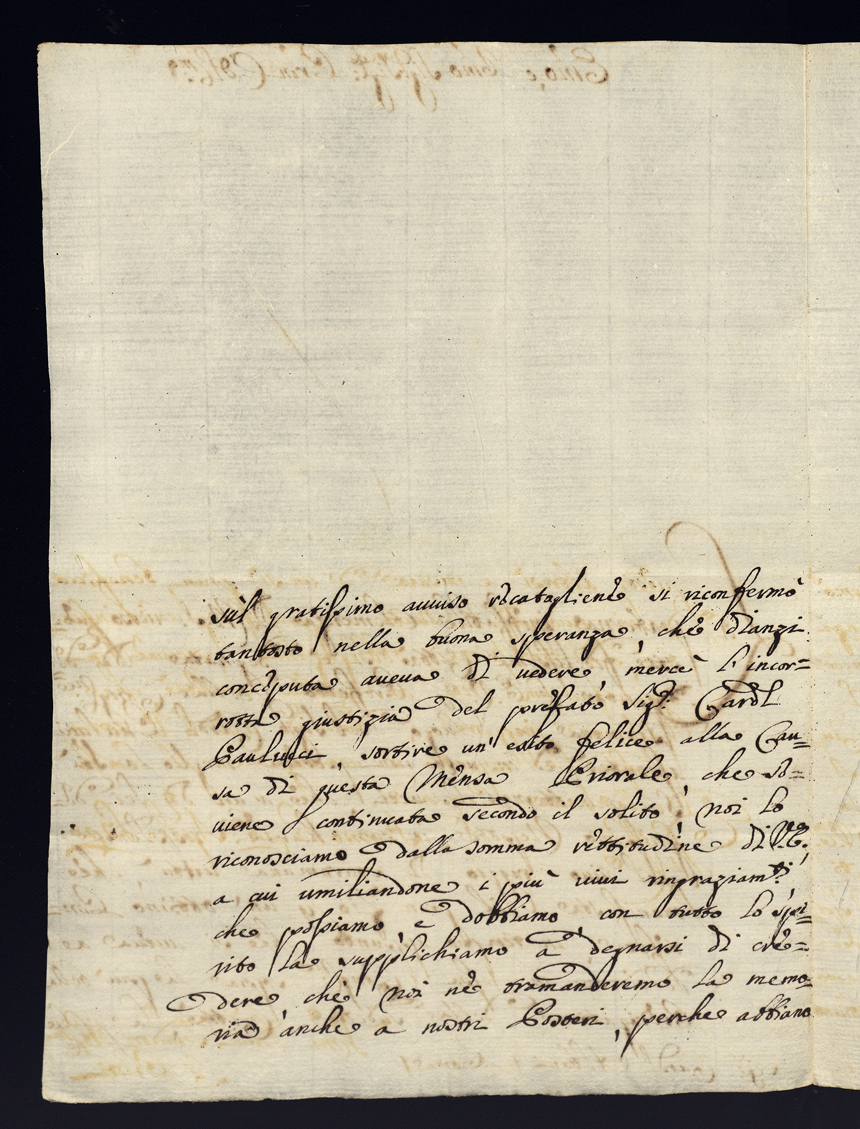 sul gratissimo auuiso recatogliene si riconfermò
tantosto nella buona speranza, che dianzi
conceputa aueua di uedere, mercè l'incor=
rotta giustizia del prefato Sig.r Card.l
Paulucci, sortire un' esito felice alla Cau=
sa di questa Mensa Priorale che so=
uiene continuata secondo il solito; noi lo
riconosciamo dalla somma rettitudine di V.E.
a cui umiliandone i più uiui ringraziam.ti
che possiamo, e dobbiamo con tutto lo spi=
rito la supplichiamo a degnarsi di cre=
dere che noi ne tramanderemo la memo=
ria anche a nostri Posteri, perche abbiano